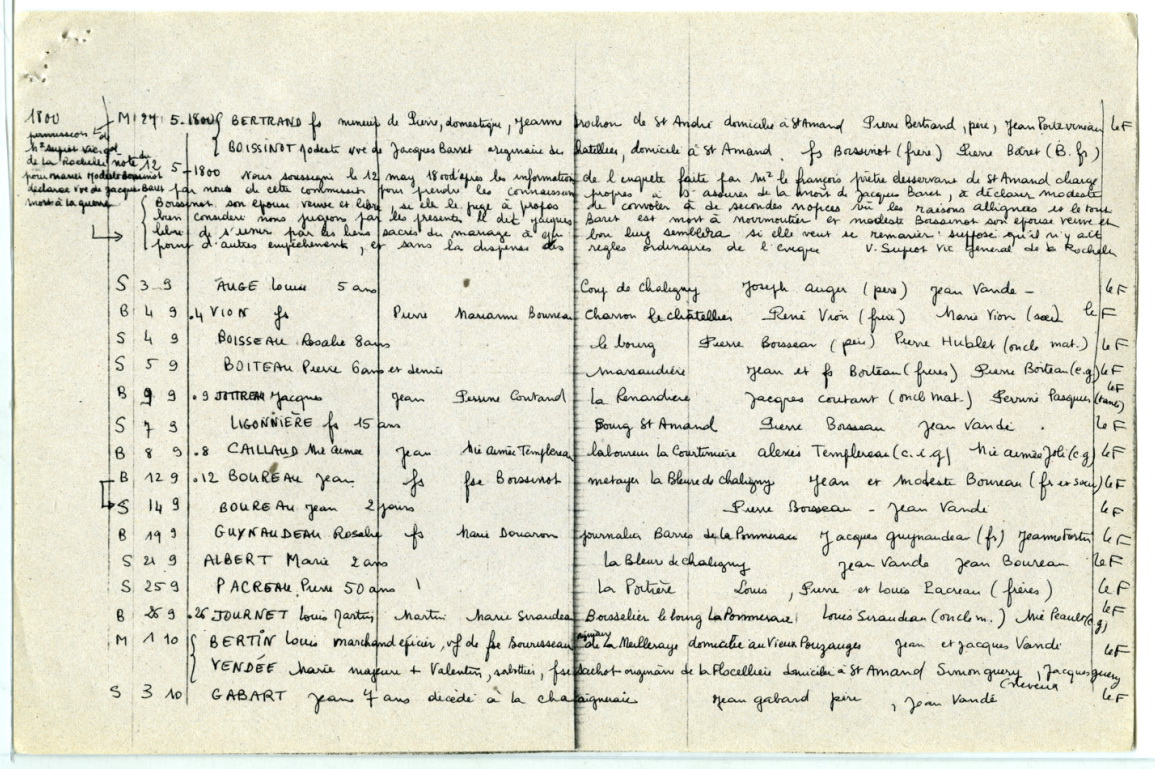 1800
permission de
Mr Supiot Vic. gal
de la Rochelle note du 12
pour marier Modeste Boissinot
déclarée vve de Jacques Baret
mort à la guerre
M 27 5.1800 BERTRAND fs mineur de Pierre, domestique, Jeanne rochon de St André domicilié à St Amand Pierre Bertrand, père, Jean Porteverseau le F
BOISSINOT Modeste vve de Jacques Barret originaire du chatelliers, domicilié à St Amand. fs Boissinot (frère) Pierre Baret (B. fr)
5-1800 Nous soussigné le 12 may 1800 d'après les information de l'enquete faite par Mr le françois prêtre desservant de St Amand chargé
par nous de cette commission pour prendre les connaissan propres à s'assurer de la mort de Jacques Baret, a déclaré modeste
Boissinot son épouse veuve et libre, si elle le juge à propos de convoler à de secondes nopces vu les raisons alléguées et le tout
bien considéré nous jugeons par les presentes le dit Jacques Baret est mort à noirmoutier et modeste Boissinot son epouse veuve et
libre de s'unir par les liens sacrés du mariage à qui bon luy semblera si elle veut se remarier supposé qu'il n'y ait
point d'autres empêchements, et sans la dispense des regles ordinaires de l'eveque V. Supiot Vic général de la Rochelle
S 3 9 AUGE Louis 5 ans Coup de Chaligny Joseph Auger (père) Jean Vande - le F
B 4 9 .4 VION fs Pierre Marianne Bourreau Charron le châtellier René Vion (frère) Marie Vion (sœur) le F
S 4 9 BOISSEAU Rosalie 8 ans le bourg Pierre Boisseau (père) Pierre Hublet (oncle mat.) le F
S 5 9 BOITEAU Pierre 6 ans et demis marsaudière Jean et fs Boiteau (frères) Pierre Boiteau (c.g) le F
B 9 9 .9 JOTTREAU Jacques Jean Perrine Coutand La Renardiere Jacques coutant (oncle mat.) Perrine Pasquier (tante) le F
S 7 9 LIGONNIÈRE fs 15 ans Bourg St Amand Pierre Bosseau Jean Vandé. le F
B 8 9 .8 CAILLAUD Mie Aimée Jean Mie aimée Templereau laboureur la Courtinière alexis Templereau (c.i.g) Mie aimée Joli (c.g) le F
B 12 9 .12 BOUREAU Jean fs fse Boissinot metayer la Bleure de chaligny Jean et Modeste Boureau (fr et sœur) le F
S 14 9 BOUREAU Jean 2 jours Pierre Bosseau - Jean Vandé le F
B 19 9 GUYNAUDEAU Rosalie fs Marie Douaron journalier Barres de la Pommeraie Jacques guynaudeau (fs) Jeanne Fortin le F
S 21 9 ALBERT Marie 2 ans La Bleure de chaligny Jean Vande Jean Boureau le F
S 25 9 PACREAU Pierre 50 ans La Poitière Louis, Pierre et Louis Pacreau (frères) le F
B 26 9 .26 JOURNET Louis Martin Martin Marie Siraudeau Bousselier le bourg la Pommeraie Louis Siraudeau (oncle m.) Mie Peault (c g) le F
M 1 10 BERTIN Louis marchand épicier, vf de fse Bourisseau originaire de la Meilleraye domicilié au Vieux Pouzauges Jean et Jacques Vandé le F
VENDÉE Marie majeure + Valentin, sabottier, fse sachot originaire de la Flocellière domicilié à St Amand Simon guery, Jacques guery
S 3 10 GABART Jean 7 ans décédé à la chataigneraie Jean gabard père, Jean Vandé le F